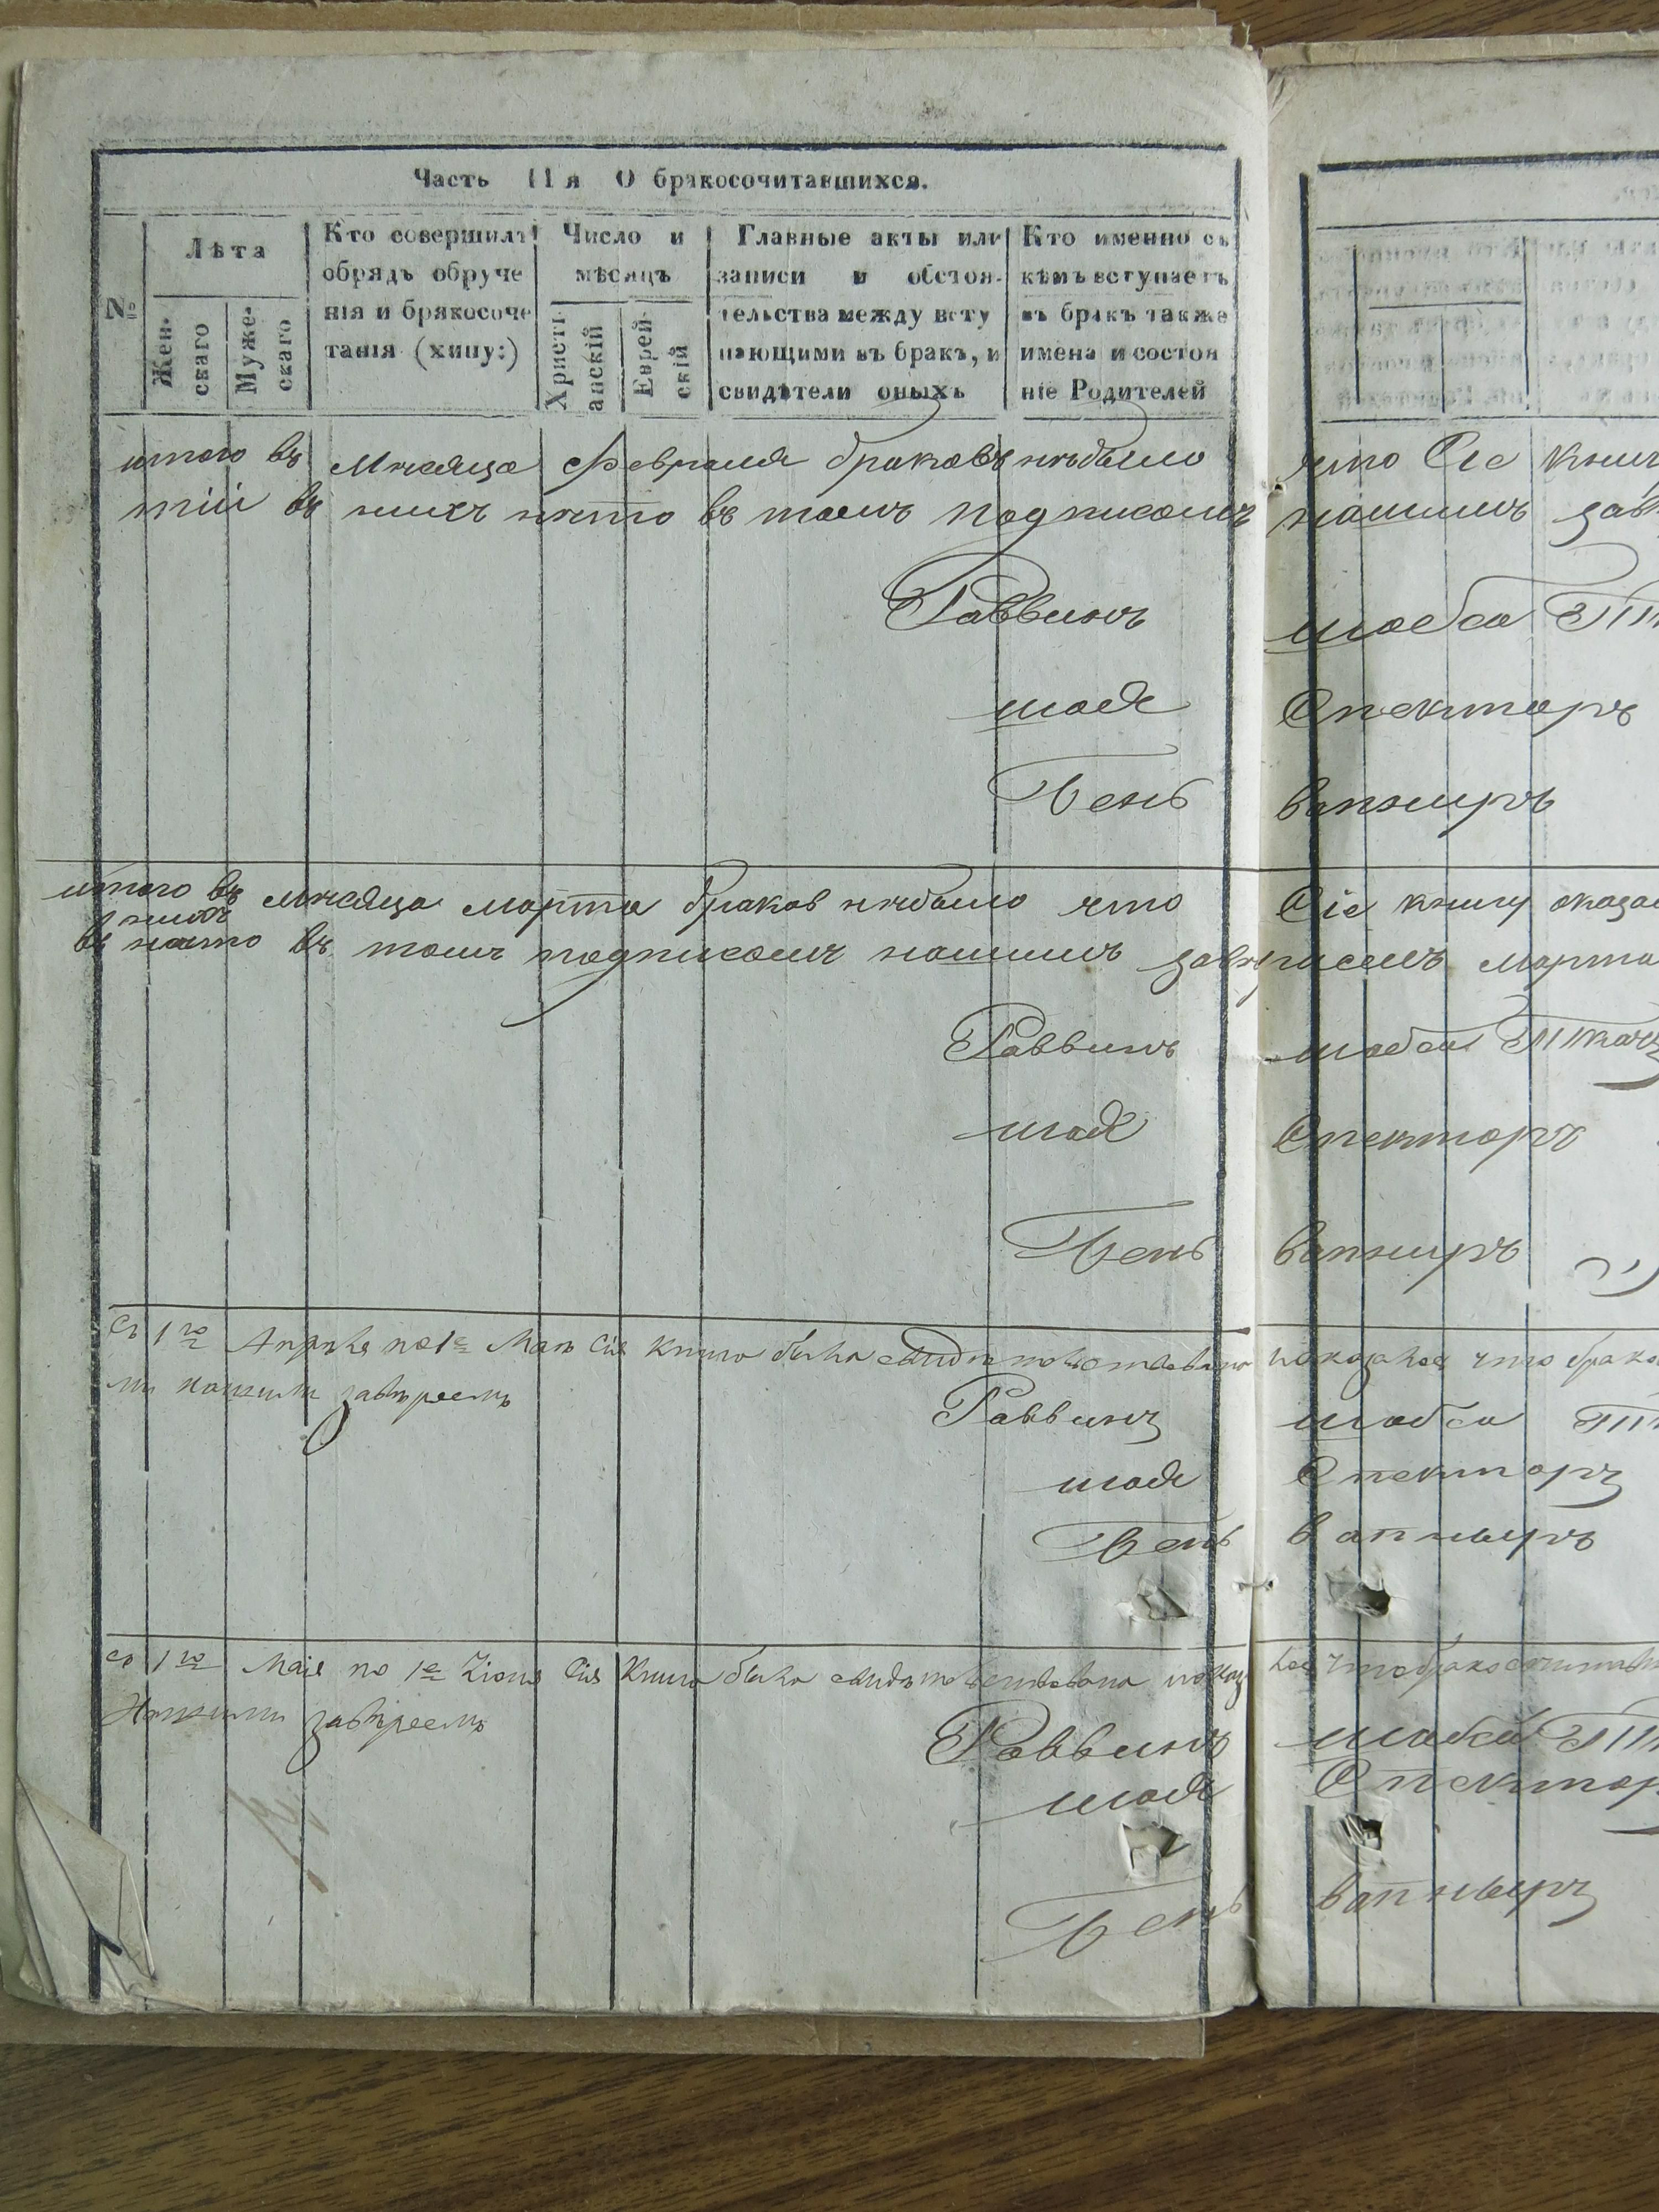 Часть II я О бракосочитавшихся.
№
Лѣта
Женскаго
Мужескаго
Кто совершилъ
обрядъ обруче
нія и брякосоче
танія (хипу:)
Число и
мѣсяцъ
Христіанскій
Еврейскій
Главные акты или
записи и обстоя-
тельства между всту
пающими въ бракъ, и
свидѣтели оныхъ
Кто именно съ
кѣмъ вступаетъ
въ бракъ также
имена и состоя
ніе Родителей
итого въ мѣсяца Февраля браковъ нѣбыло что Сіе книг
тій въ нихъ нѣто въ томъ подписомъ нашимъ завѣ
Раввинъ шабса
шая Спекторъ
Бень вапниръ
итого въ мѣсяца марта браков нѣбыло что Сіе книгу оказа
нихъ
въ нѣто въ томъ подписомъ нашимъ завѣрисемъ марта
Раввинъ шабса Ткачъ
шая Спекторъ
Бень вапниръ
Съ 1го Апрѣля по 1е Мая Сія Книга была свидѣтельствована показалос что брако
ми нашими завѣряемъ
Раввинъ шабса
шая Спекторъ
Бень вапниръ
съ 1го Маія по 1е Іюня Сія Книга была свидѣтельствована показа лос что бракосочитав
Нашими завѣряемъ
Раввинъ шабса
шая Спектор
Бень вапниръ